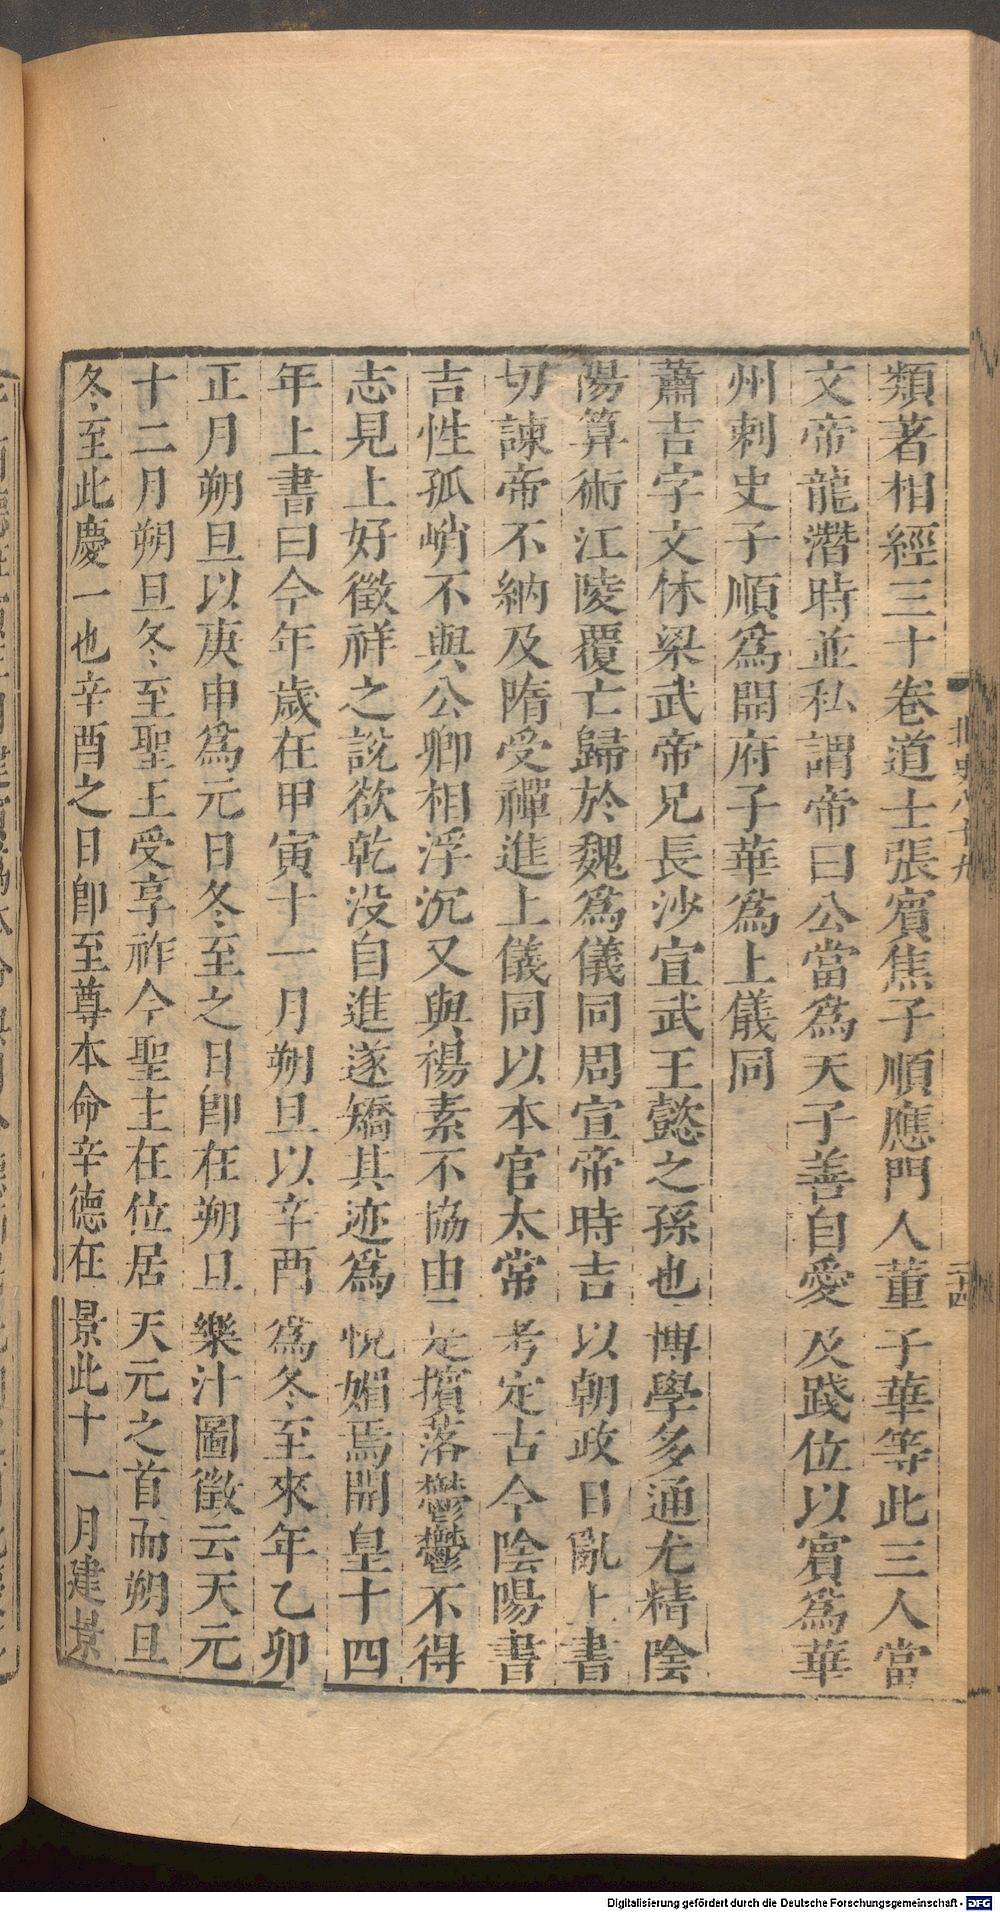 類著相經三十卷道士張賓焦子順應門人董子華等此三人當
文帝龍潛時並私謂帝曰公當爲天子善自愛及踐位以賓爲華
州刺史子順爲開府子華爲上儀同
蕭吉字文休梁武帝兄長沙宣武王懿之孫也博學多通尤精陰
陽算術江陵覆亡歸於魏爲儀同周宣帝時吉以朝政日亂上書
切諫帝不納及隋受禪進上儀同以本官太常考定古今陰陽書
吉性孤峭不與公卿相浮沉又與楊素不協由是擯落鬱鬱不得
志見上好徵祥之說欲乾没自進遂矯其迹爲悅媚焉開皇十四
年上書曰今年歲在甲寅十一月朔旦以辛酉爲冬至來年乙卯
正月朔旦以庚申爲元日冬至之日即在朔旦樂汁圖徵云天元
十二月朔旦冬至聖王受享祚今聖主在位居天元之首而朔旦
冬至此慶一也辛酉之日即至尊本命辛德在景此十一月建景
北史八十九
二十四
Digitalisierung gefördert durch die Deutsche Forschungsgemeinschaft - DFG